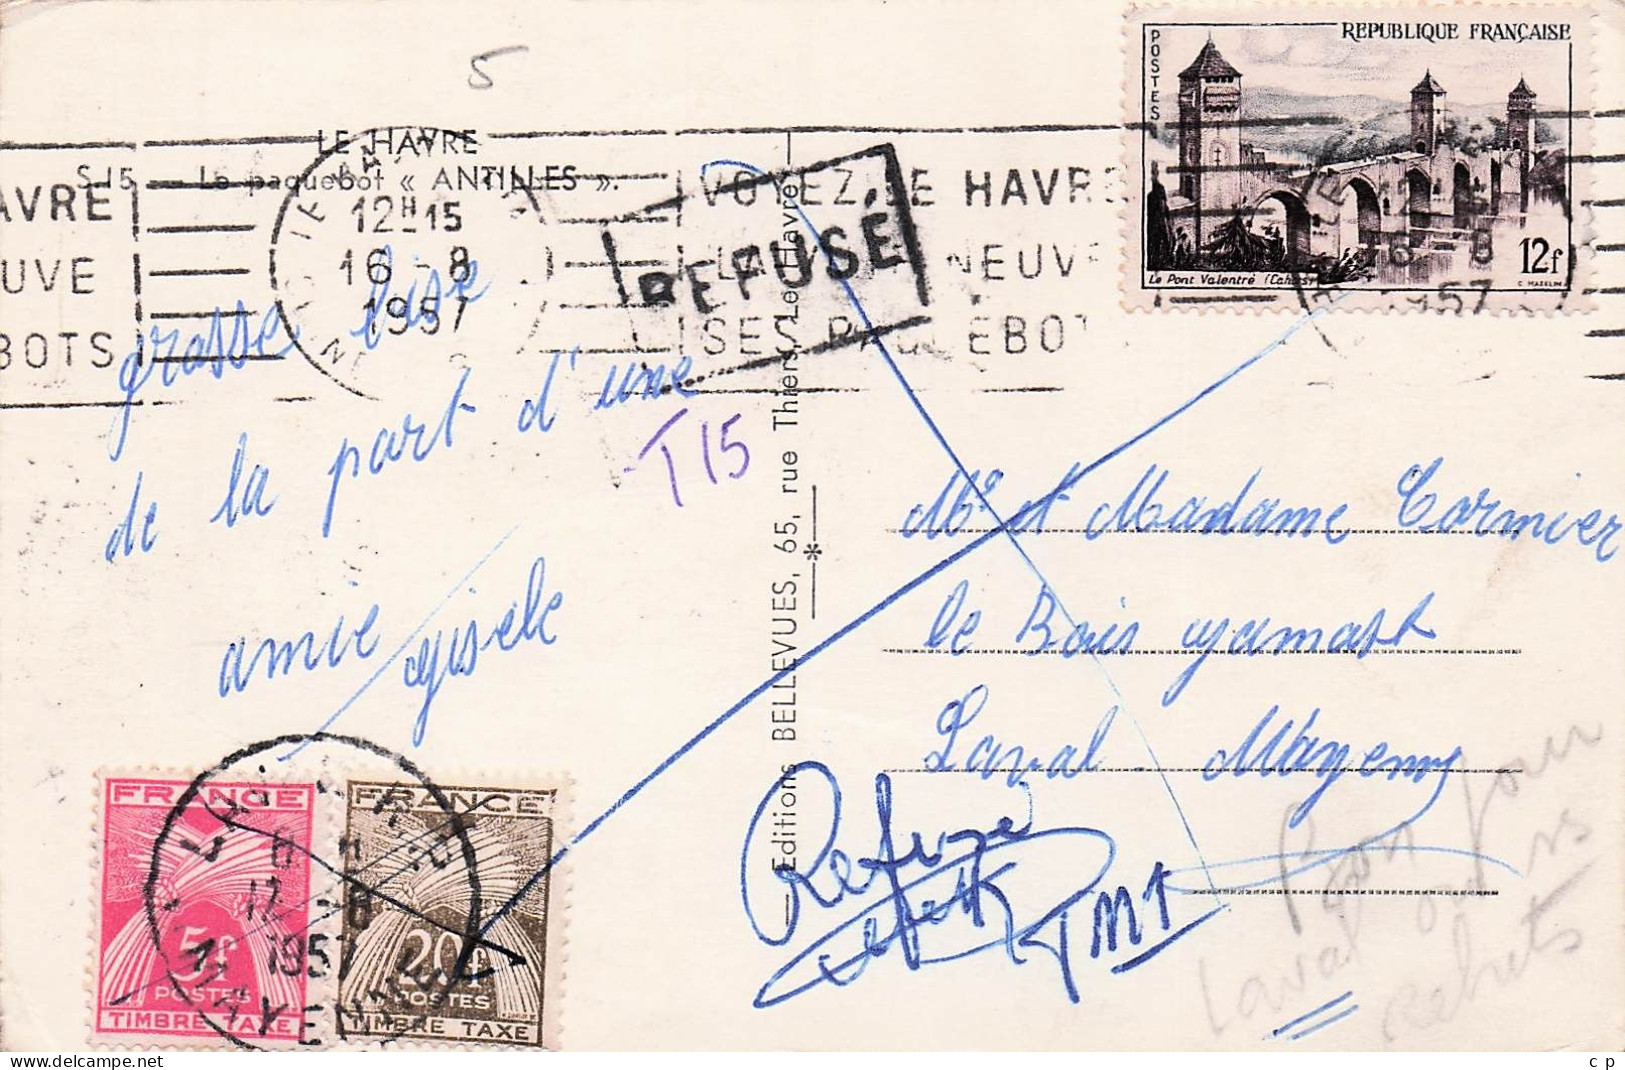 5
LE HAVRE
S 15 Le paquebot « ANTILLES ».
12H15
16 - 8
1957
AVRE
UVE
BOTS
VOYEZ LE HAVRE
NEUV
PAQUEBOT
REFUSÉ
REPUBLIQUE FRANÇAISE
POSTES
Le Pont Valentré (Cahors)
12f
C. MAZELIN
16 - 8
1957
grosse bise
de la part d'une
amie gisele
T 15
Editions BELLEVUES, 65, rue Thiers, Le Havre
*
Mr et Madame Cormier
le Bois gamast
Laval Mayenne
Refusé
Bon pour
Laval
Rebuts
FRANCE
5f
POSTES
TIMBRE TAXE
FRANCE
20f
POSTES
TIMBRE TAXE
LAVAL R.P.
17 - 8
1957
MAYENNE
c p